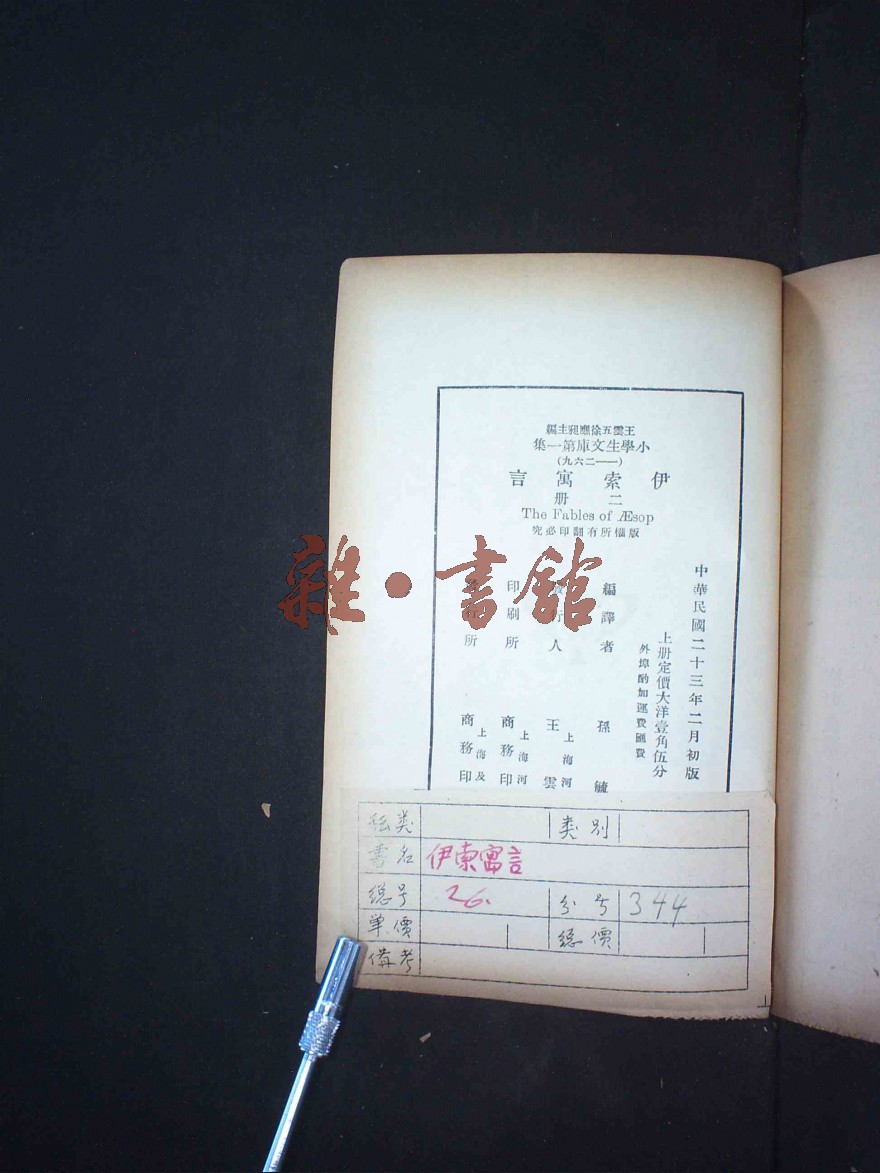 王雲五徐應昶主編
小學生文庫第一集
(一一二六九)
伊索寓言
二册
The Fables of Æsop
版權所有翻印必究
中華民國二十三年二月初版
上册定價大洋壹角伍分
外埠酌加運費匯費
編譯者 孫毓
行人 王雲 上海河
印刷所 商務印 上海河
所 商務印 上海及
雜·書館
類别
書名 伊索寓言
總号 26. 分号 344
單價 總價
備考